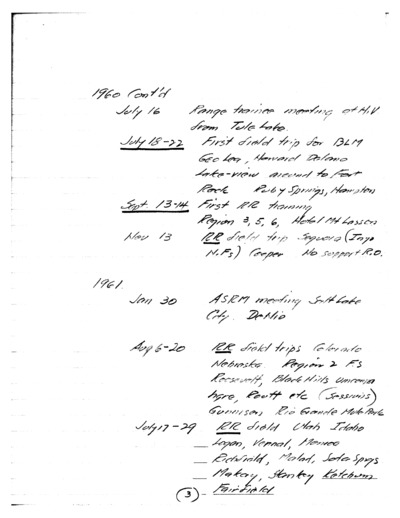 1960 Cont'd
July 16 Range trainee meeting at H.V
from Tule Lake.
July 18-22 First field trip for BLM
Geo Lea, Howard Delano
Lake-view around to Fort
Rock Ruby Springs, Hampton
Sept. 13-14 First RR training
Region 3, 5, 6, Hotel Mt Lassen
Nov 13 RR field trip Sequoia (Inyo
N.Fs) Cooper No support R.O.
1961.
Jan 30 ASRM meeting Salt Lake
City.
Aug 6-20 RR field trips Colorado
Nebraska Region 2 FS
Roosevelt, Black Hills
Routt etc (Sessions)
Gunnison Rio Grande
July 17-29 RR field Utah Idaho
Logan, Vernal, Monroe
Richfield, Malad, Soda Spgs
Mackay, Stanley Ketchum
3 - Fairfield